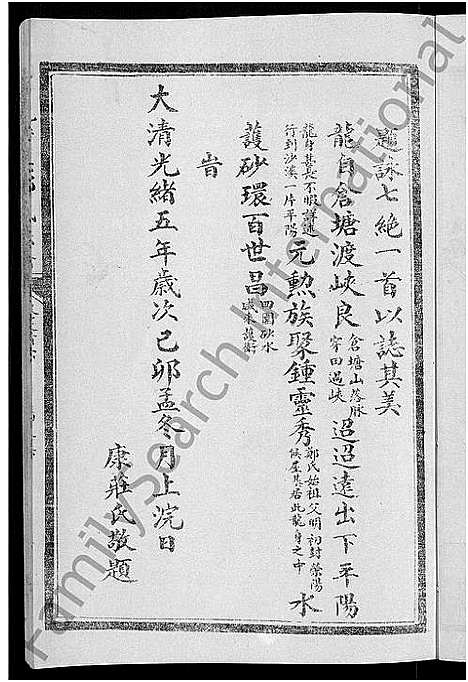 題詠七絕一首以誌其美
龍自倉塘渡峽良倉塘山落脉穿田過峽迢迢遠出下平陽
龍身甚長不暇詳述行到沙溪一片平陽元勲族聚鍾靈秀鄭氏始祖父明初封滎陽侯星其居此龍身之中水
護砂環百世昌四圍砂水咸來護衛
旹
大清光緒五年歲次己卯孟冬月上浣日
康莊氏敬題
FamilySearch International